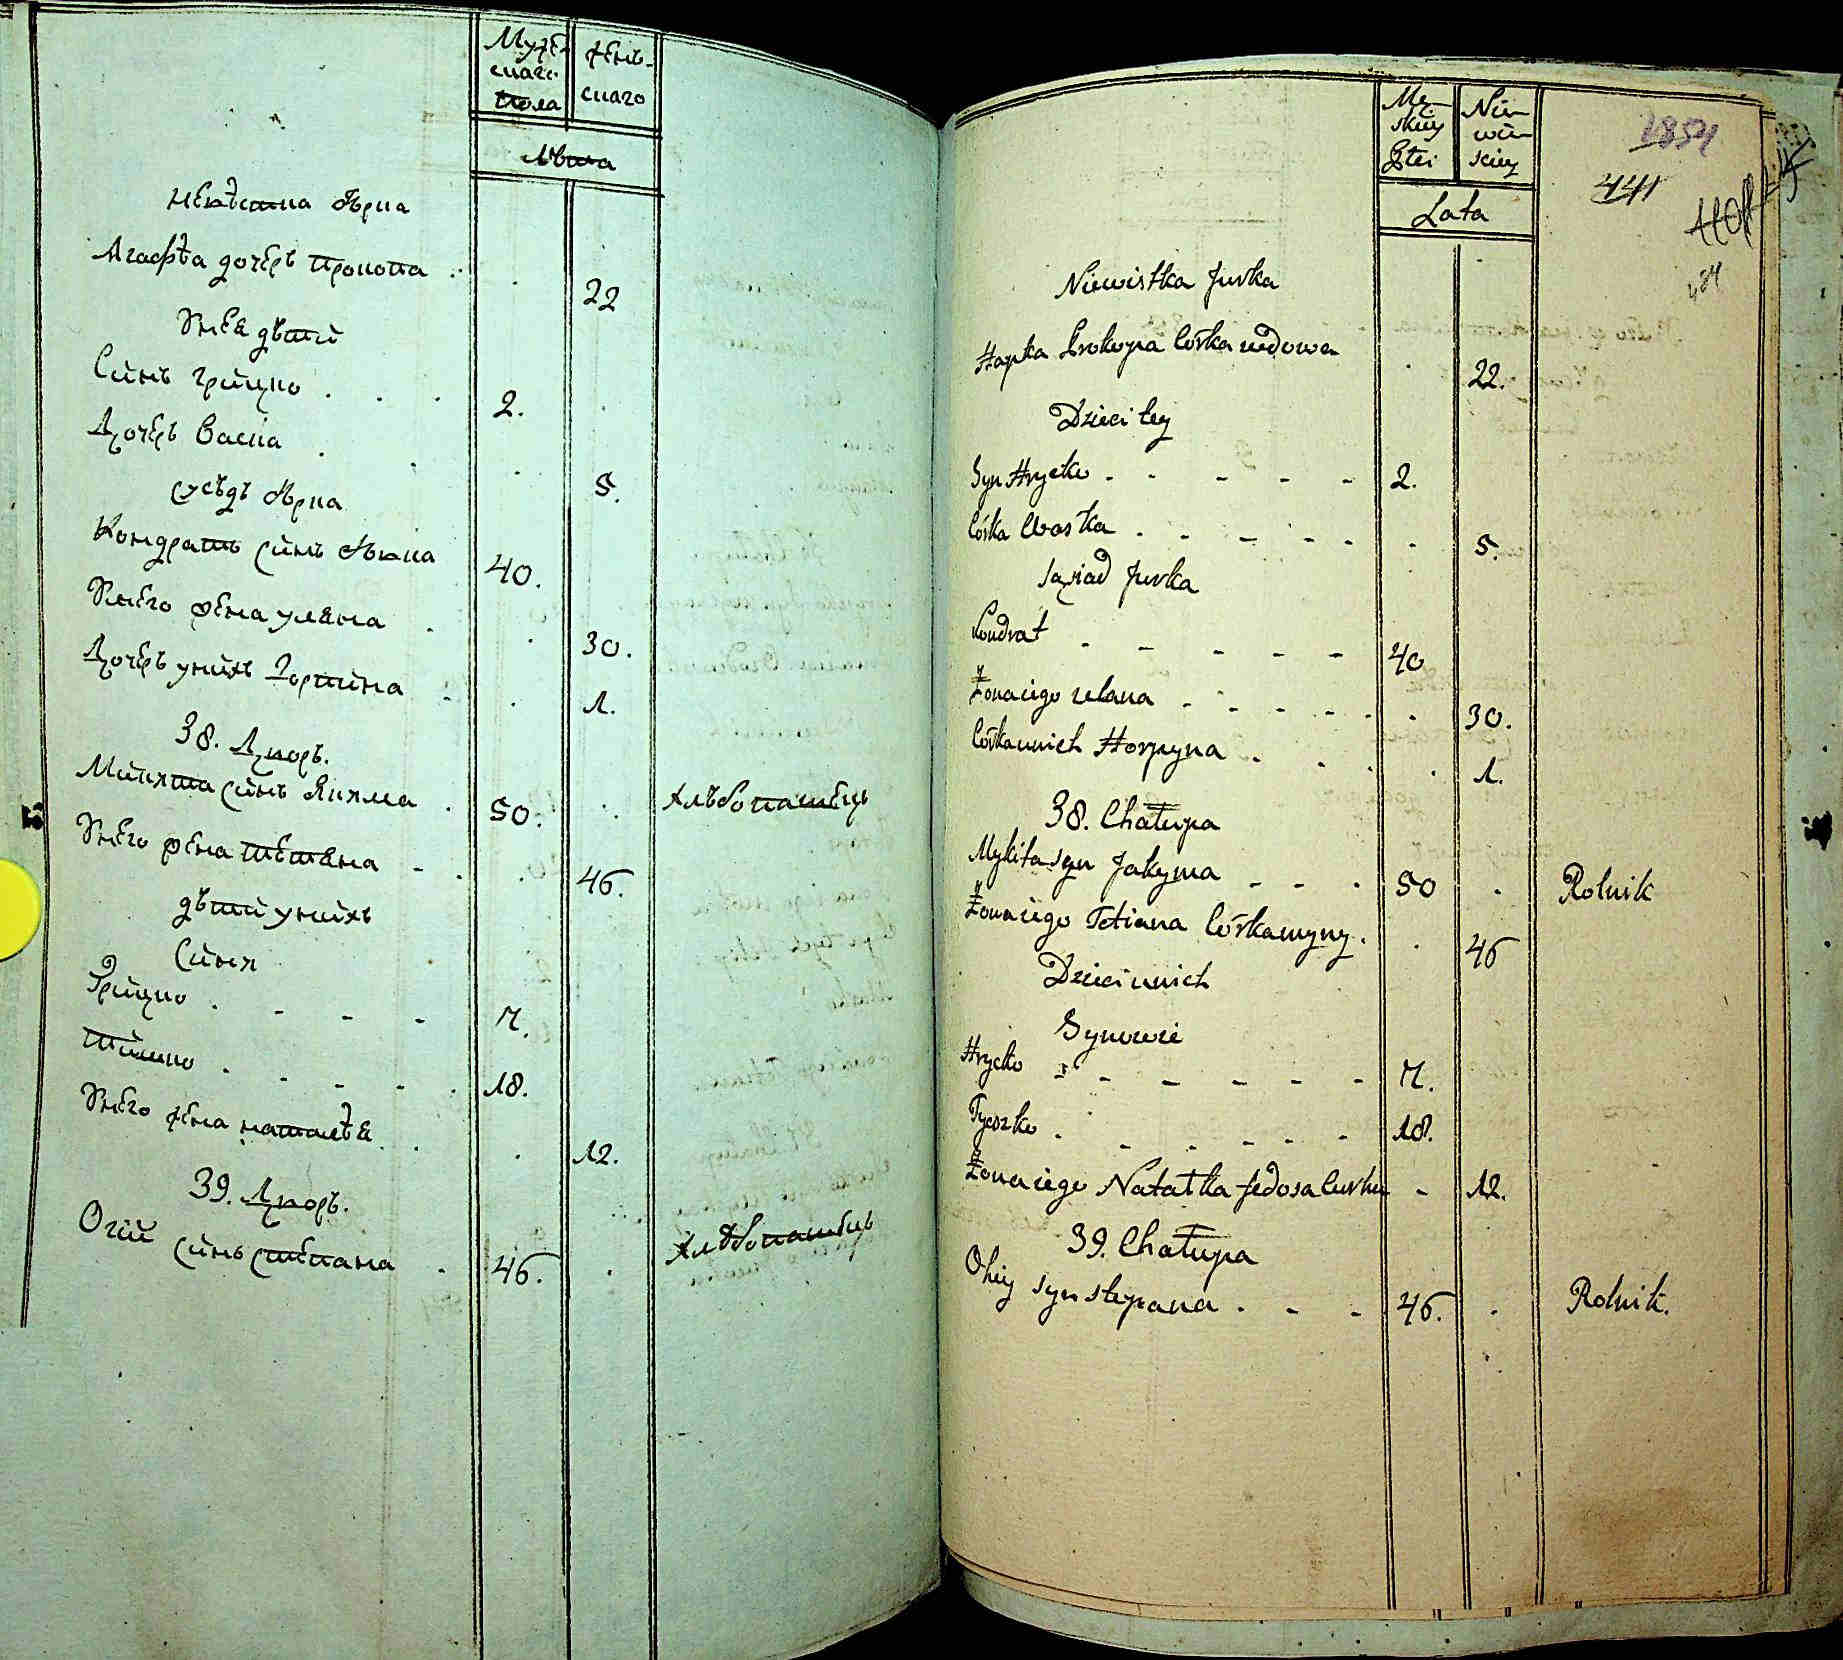 Мужескаго пола
женьскаго
лѣта
невѣстка Юрка
Агафѣа дочерь Прокопа
22
У неа дѣтй
Сйнъ Грйцко
2.
Дочерь Васка
5.
сусѣдъ Юрка
Кондратъ сйнъ Юцка
40.
У него жена Уляна
30.
Дочерь у нйхъ Горпйна
1.
38. Дворъ.
Мйкита сйнъ Якима
50.
хлѣбопашецъ
У него жена Тетяна
46.
дѣтй у нйхъ
Сйни
Грйцко
7.
Тйшко
18.
У него жена наталѣя
12.
39. Дворъ.
Огій сйнъ Степана
46.
хлѣбопашецъ
Męskiey Płci
Niewieskiey
Lata
1854
441
484
Niewistka Jurka
Hapka Prokopa Córka wdowa
22.
Dzieci tey
Syn Hrycko
2.
Córka Waska
5.
Sąsiad Jurka
Kondrat
40
Żona iego Ulana
30.
Córka u nich Horpyna
1.
38. Chałupa
Mykita syn Jakyma
50
Rolnik
Żona iego Tetiana Córka
46
Dzieci u nich
Synowie
Hrycko
7.
Tyszko
18.
Żona iego Natałka Fedosa Curka
12.
39. Chałupa
Ohiy syn Stepana
46.
Rolnik.